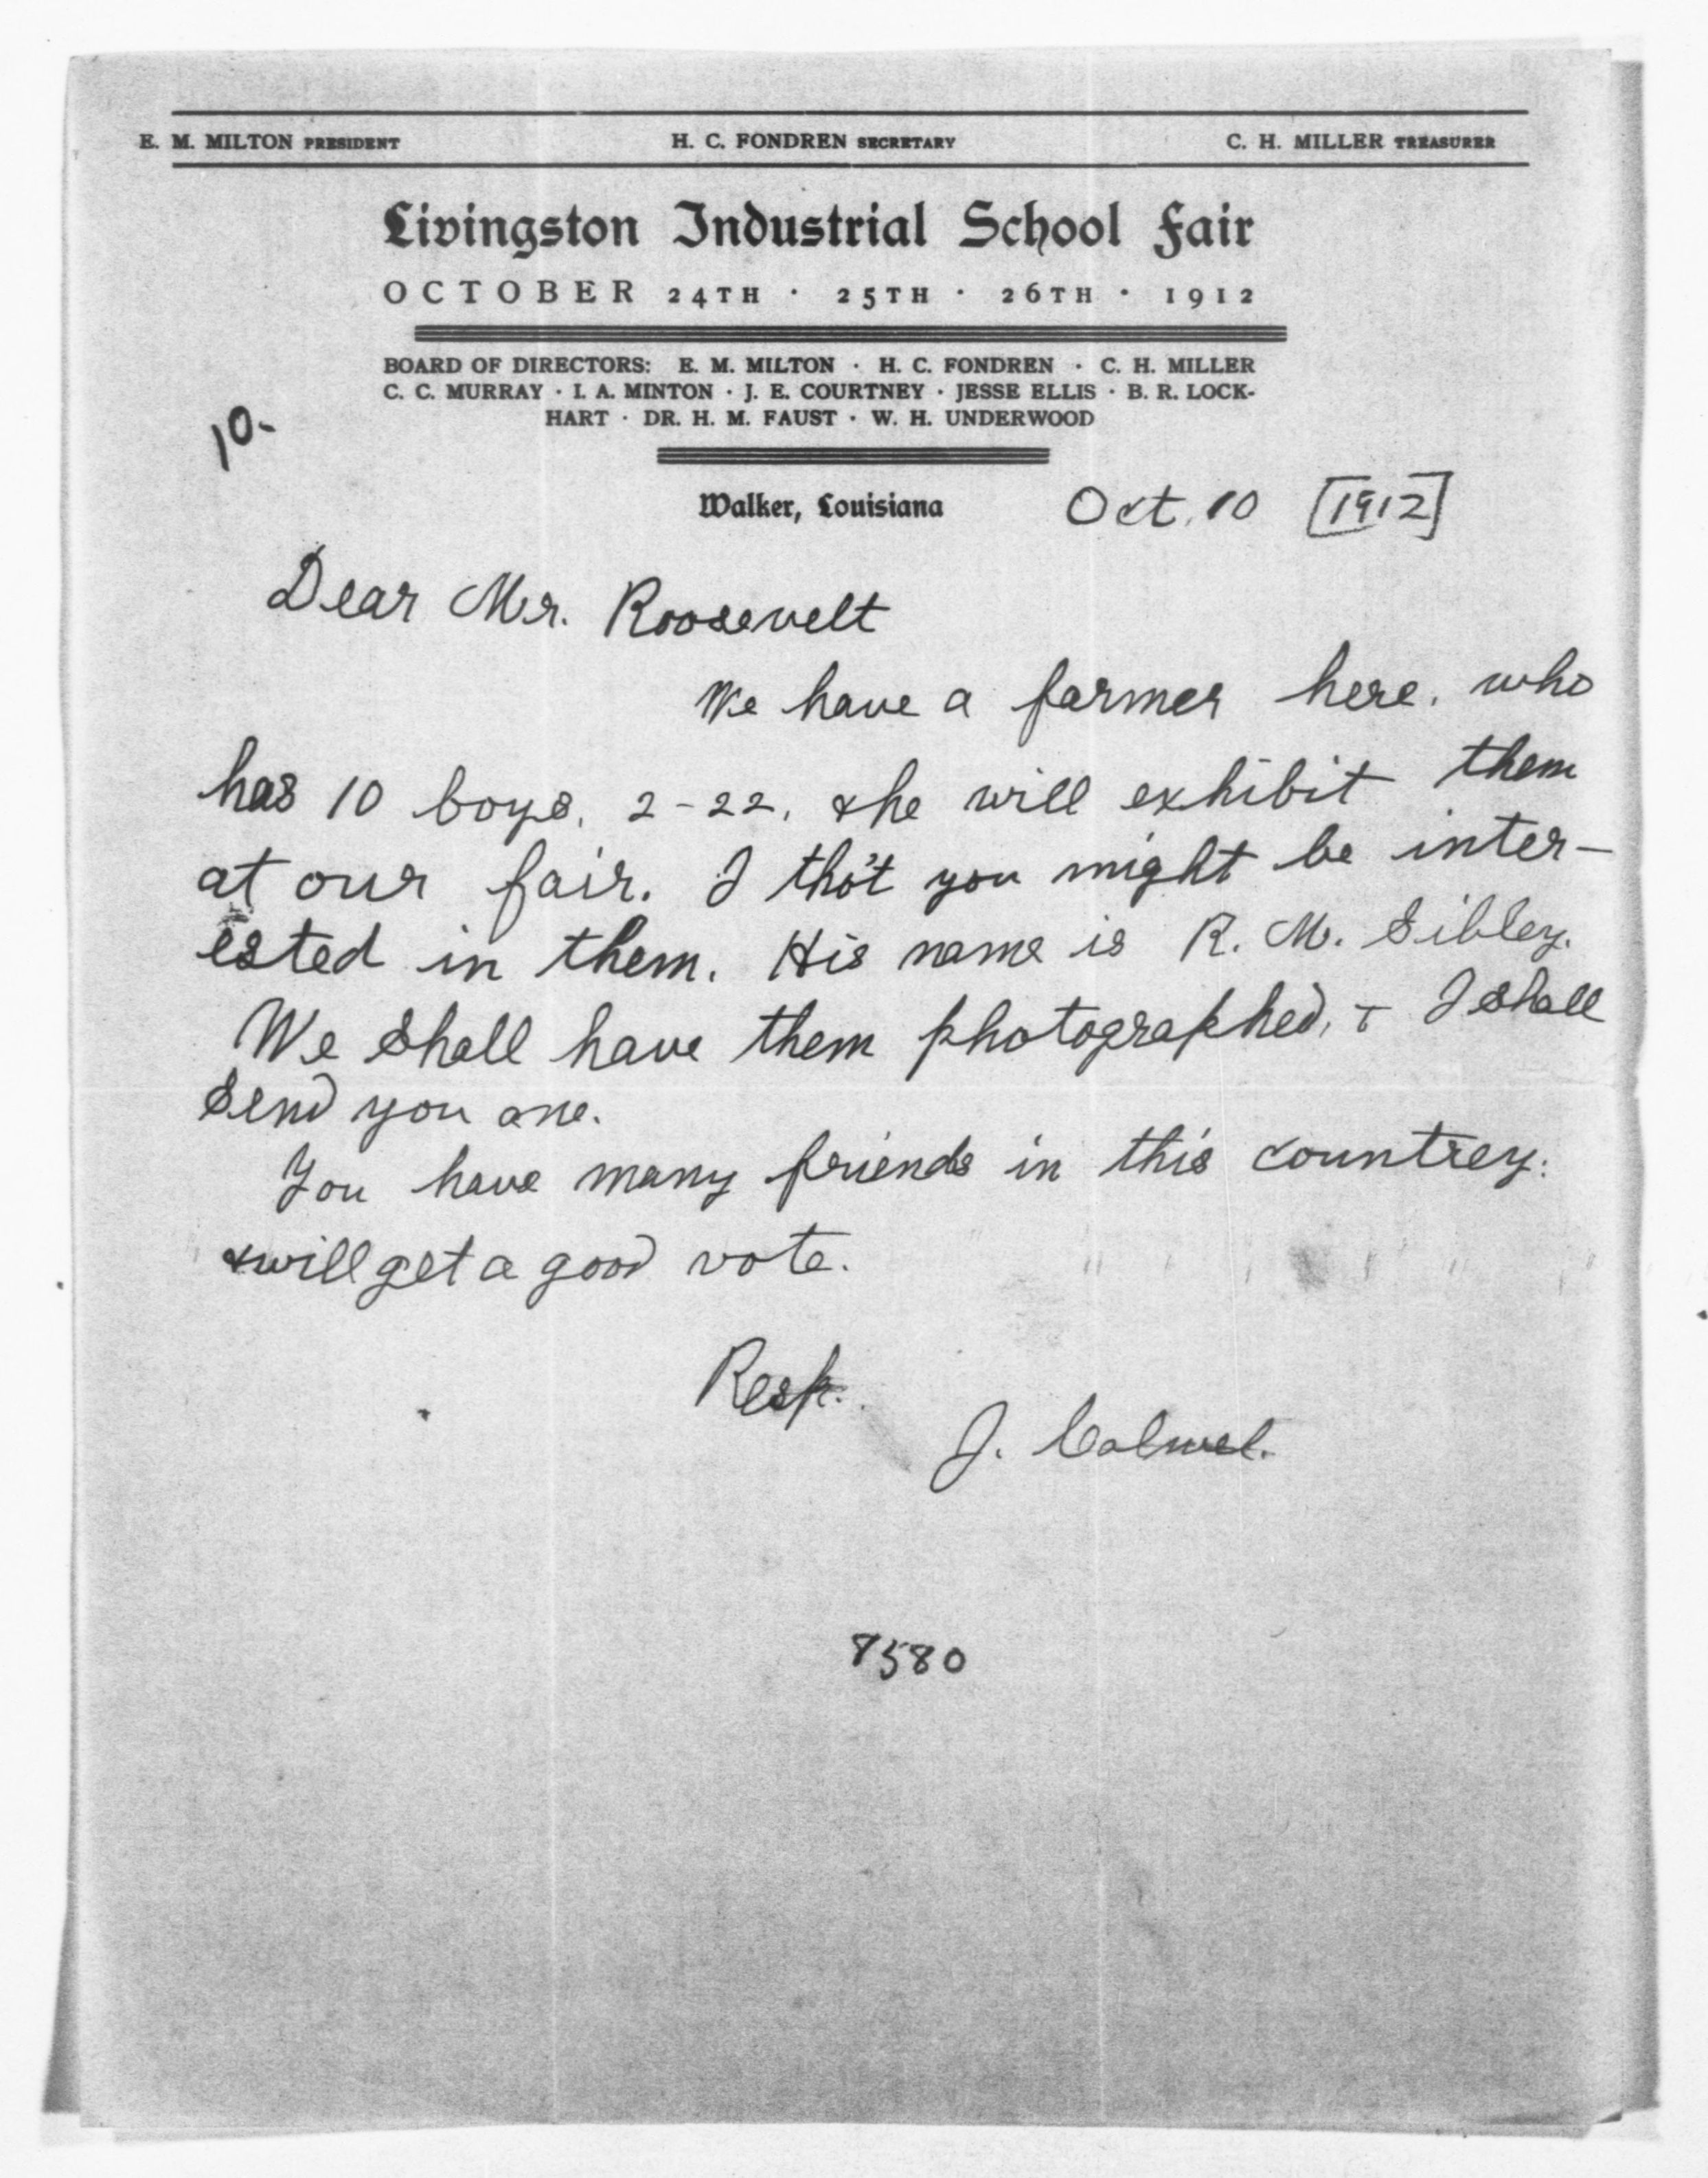 E. M. MILTON PRESIDENT H. C. FONDREN SECRETARY C. H. MILLER TREASURER
Livingston Industrial School Fair
OCTOBER 24TH · 25TH · 26TH · 1912
BOARD OF DIRECTORS: E. M. MILTON · H. C. FONDREN · C. H. MILLER
C. C. MURRAY · I. A. MINTON · J. E. COURTNEY · JESSE ELLIS · B. R. LOCK-
HART · DR. H. M. FAUST · W. H. UNDERWOOD
10-
Walker, Louisiana Oct. 10 [1912]
Dear Mr. Roosevelt
We have a farmer here, who
has 10 boys, 2-22, & he will exhibit them
at our fair. I tho't you might be inter-
ested in them. His name is R. M. Sibley.
We shall have them photographed, & I shall
send you one.
You have many friends in this countrey.
& will get a good vote.
Resp.
J.
8580